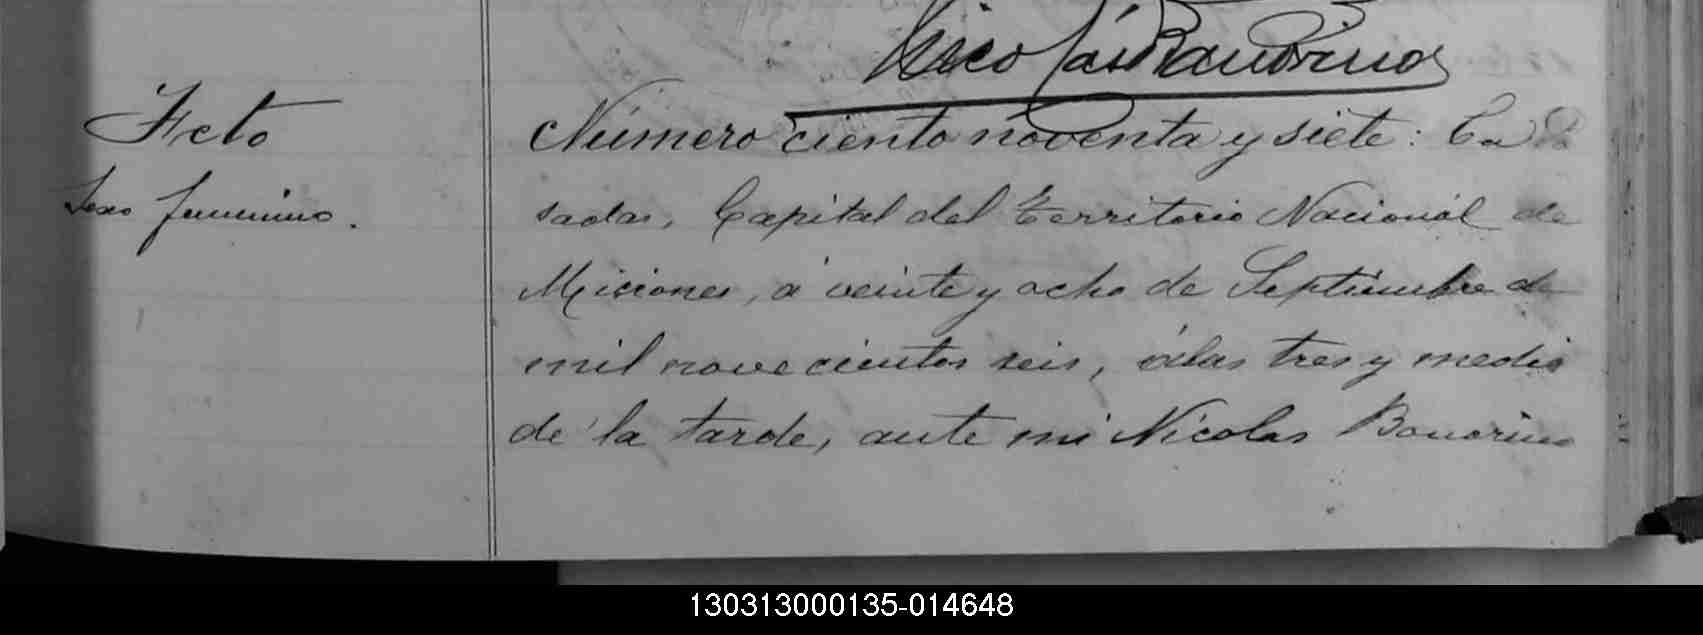 Nicolás Bonorino
Feto
Sexo femenino.
Número ciento noventa y siete: En Po
sadas, Capital del Territorio Nacional de
Misiones, á veinte y ocho de Septiembre de
mil novecientos seis, á las tres y media
de la tarde, ante mi Nicolas Bonorino
130313000135-014648